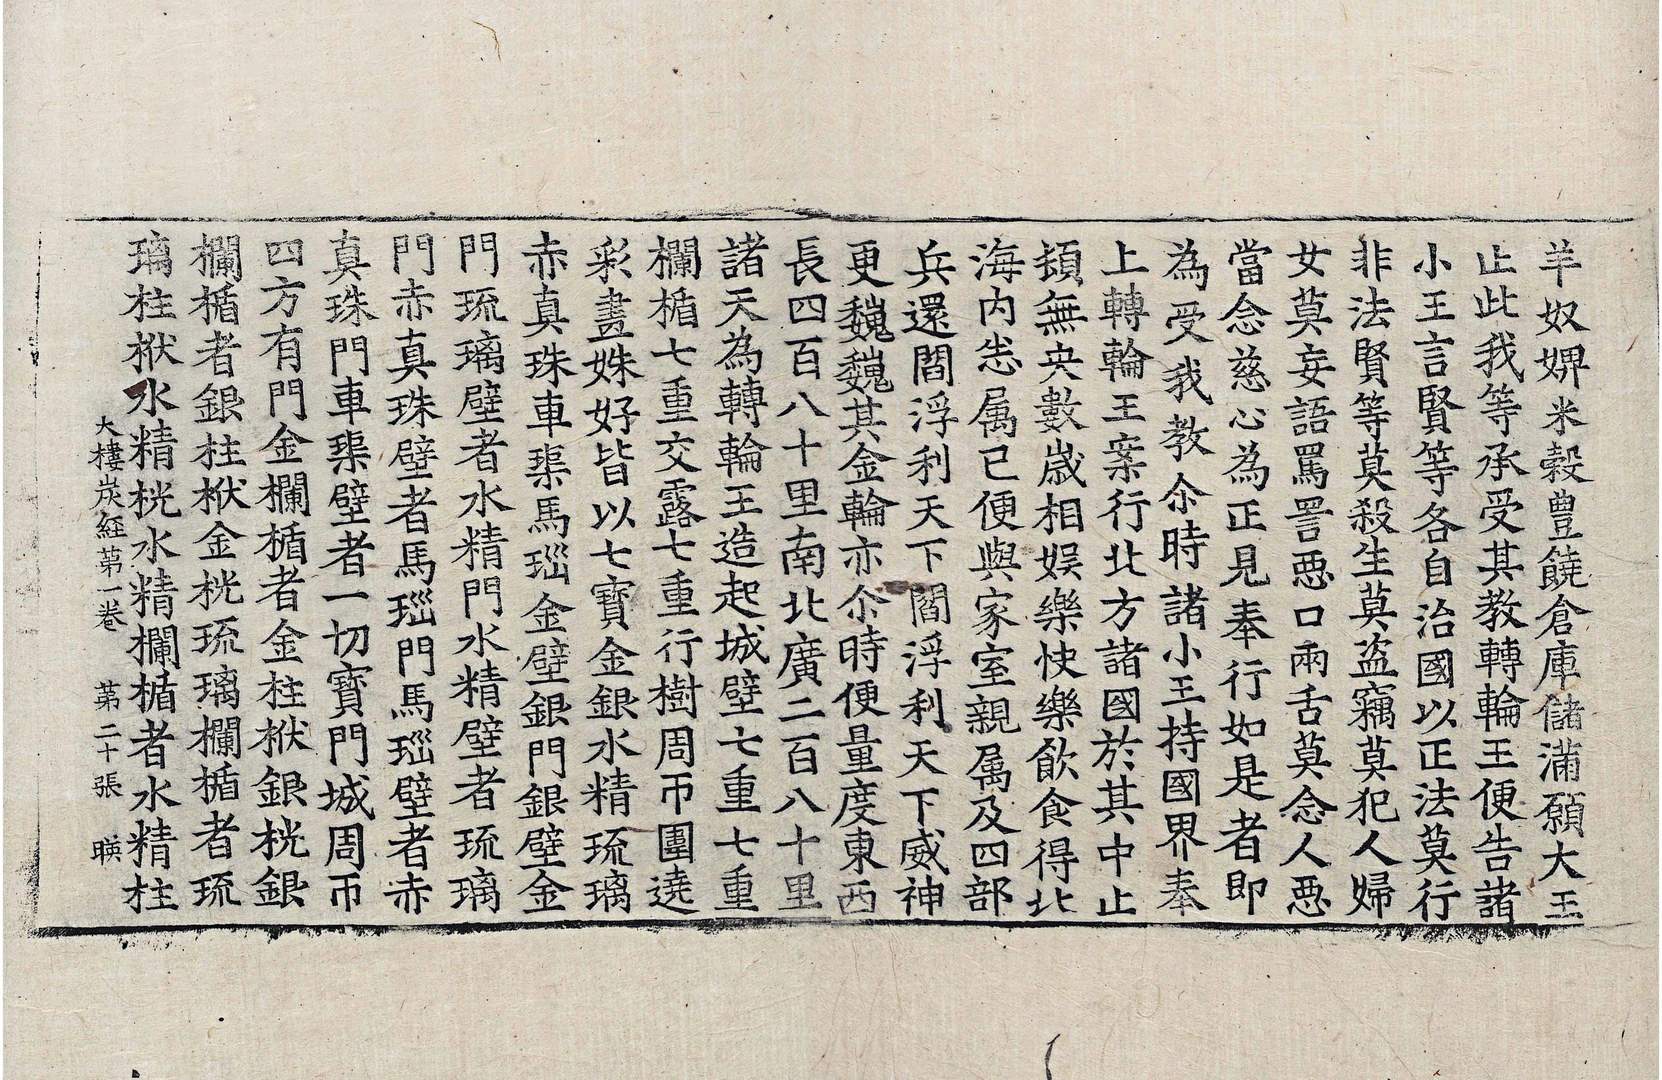 羊奴婢米穀豊饒倉庫儲滿願大王
止此我等承受其教轉輪王便告諸
小王言賢等各自治國以正法莫行
非法賢等莫殺生莫盗竊莫犯人婦
女莫妄語罵詈惡口兩舌莫念人惡
當念慈心為正見奉行如是者即
為受我教尒時諸小王持國界奉
上轉輪王案行北方諸國於其中止
頞無央數嵗相娯樂快樂飲食得北
海内悉属已便與家室親属及四部
兵還閻浮利天下閻浮利天下威神
更巍巍其金輪亦尒時便量度東西
長四百八十里南北廣二百八十里
諸天為轉輪王造起城壁七重七重
欄楯七重交露七重行樹周帀圍遶
彩畫姝好皆以七寶金銀水精琉璃
赤真珠車渠馬瑙金壁銀門銀壁金
門琉璃壁者水精門水精壁者琉璃
門赤真珠壁者馬瑙門馬瑙壁者赤
真珠門車渠壁者一切寶門城周帀
四方有門金欄楯者金柱栿銀桄銀
欄楯者銀柱栿金桄琉璃欄楯者琉
璃柱栿水精桄水精欄楯者水精柱
大樓炭經苐一卷　苐二十張　暎